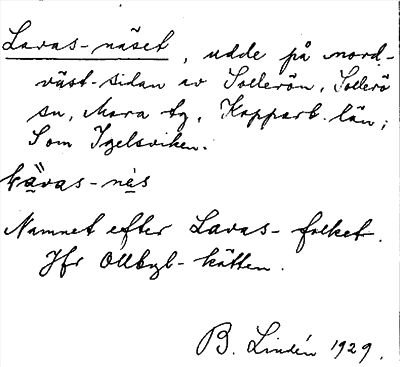 Lavas-näset, udde på nord-
väst-sidan av Sollerön, Sollerö
sn, Mora tg, Kopparb. län;
Som Igelsviken.
lävas-nes
Namnet efter Lavas-folket.
Jfr Ollbyl-kätten.
B. Lindén 1929.